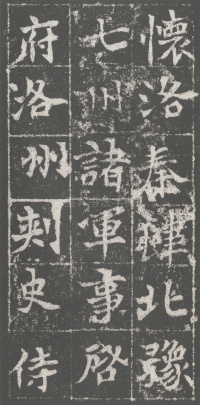 懷洛秦建北豫
七州諸軍事啓
府洛州刾史侍